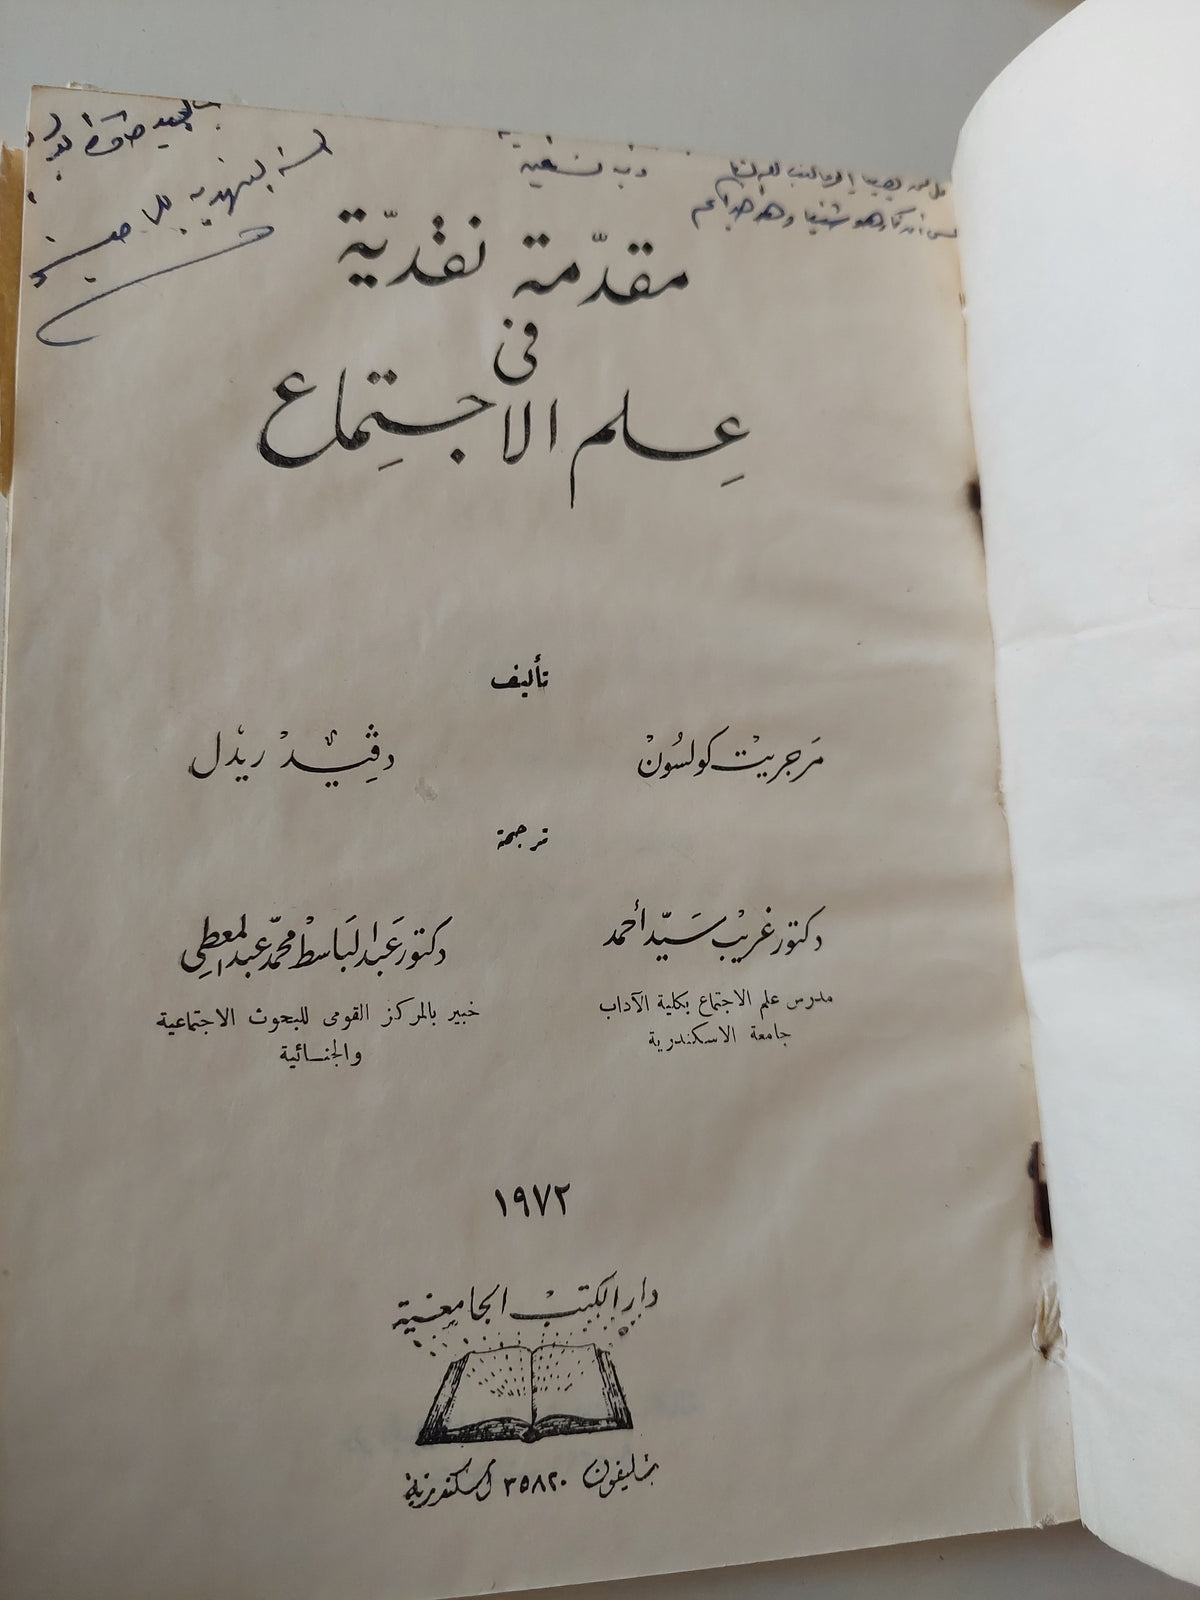 السنة التمهيدية للماجستير
مقدّمة نقديّة
فى
عِلم الاجتِماع
تأليف
مَرجريتْ كولسُونْ
دڤيد ريدل
ترجمة
دكتور غريبْ سَيّد أحمد
مدرس علم الاجتماع بكلية الآداب
جامعة الاسكندرية
دكتور عَبد البَاسطْ محمّد عبد المعطى
خبير بالمركز القومى للبحوث الاجتماعية
والجنائية
١٩٧٢
دار الكتب الجامعية
تليفون ٣٥٨٢٠ اسكندرية